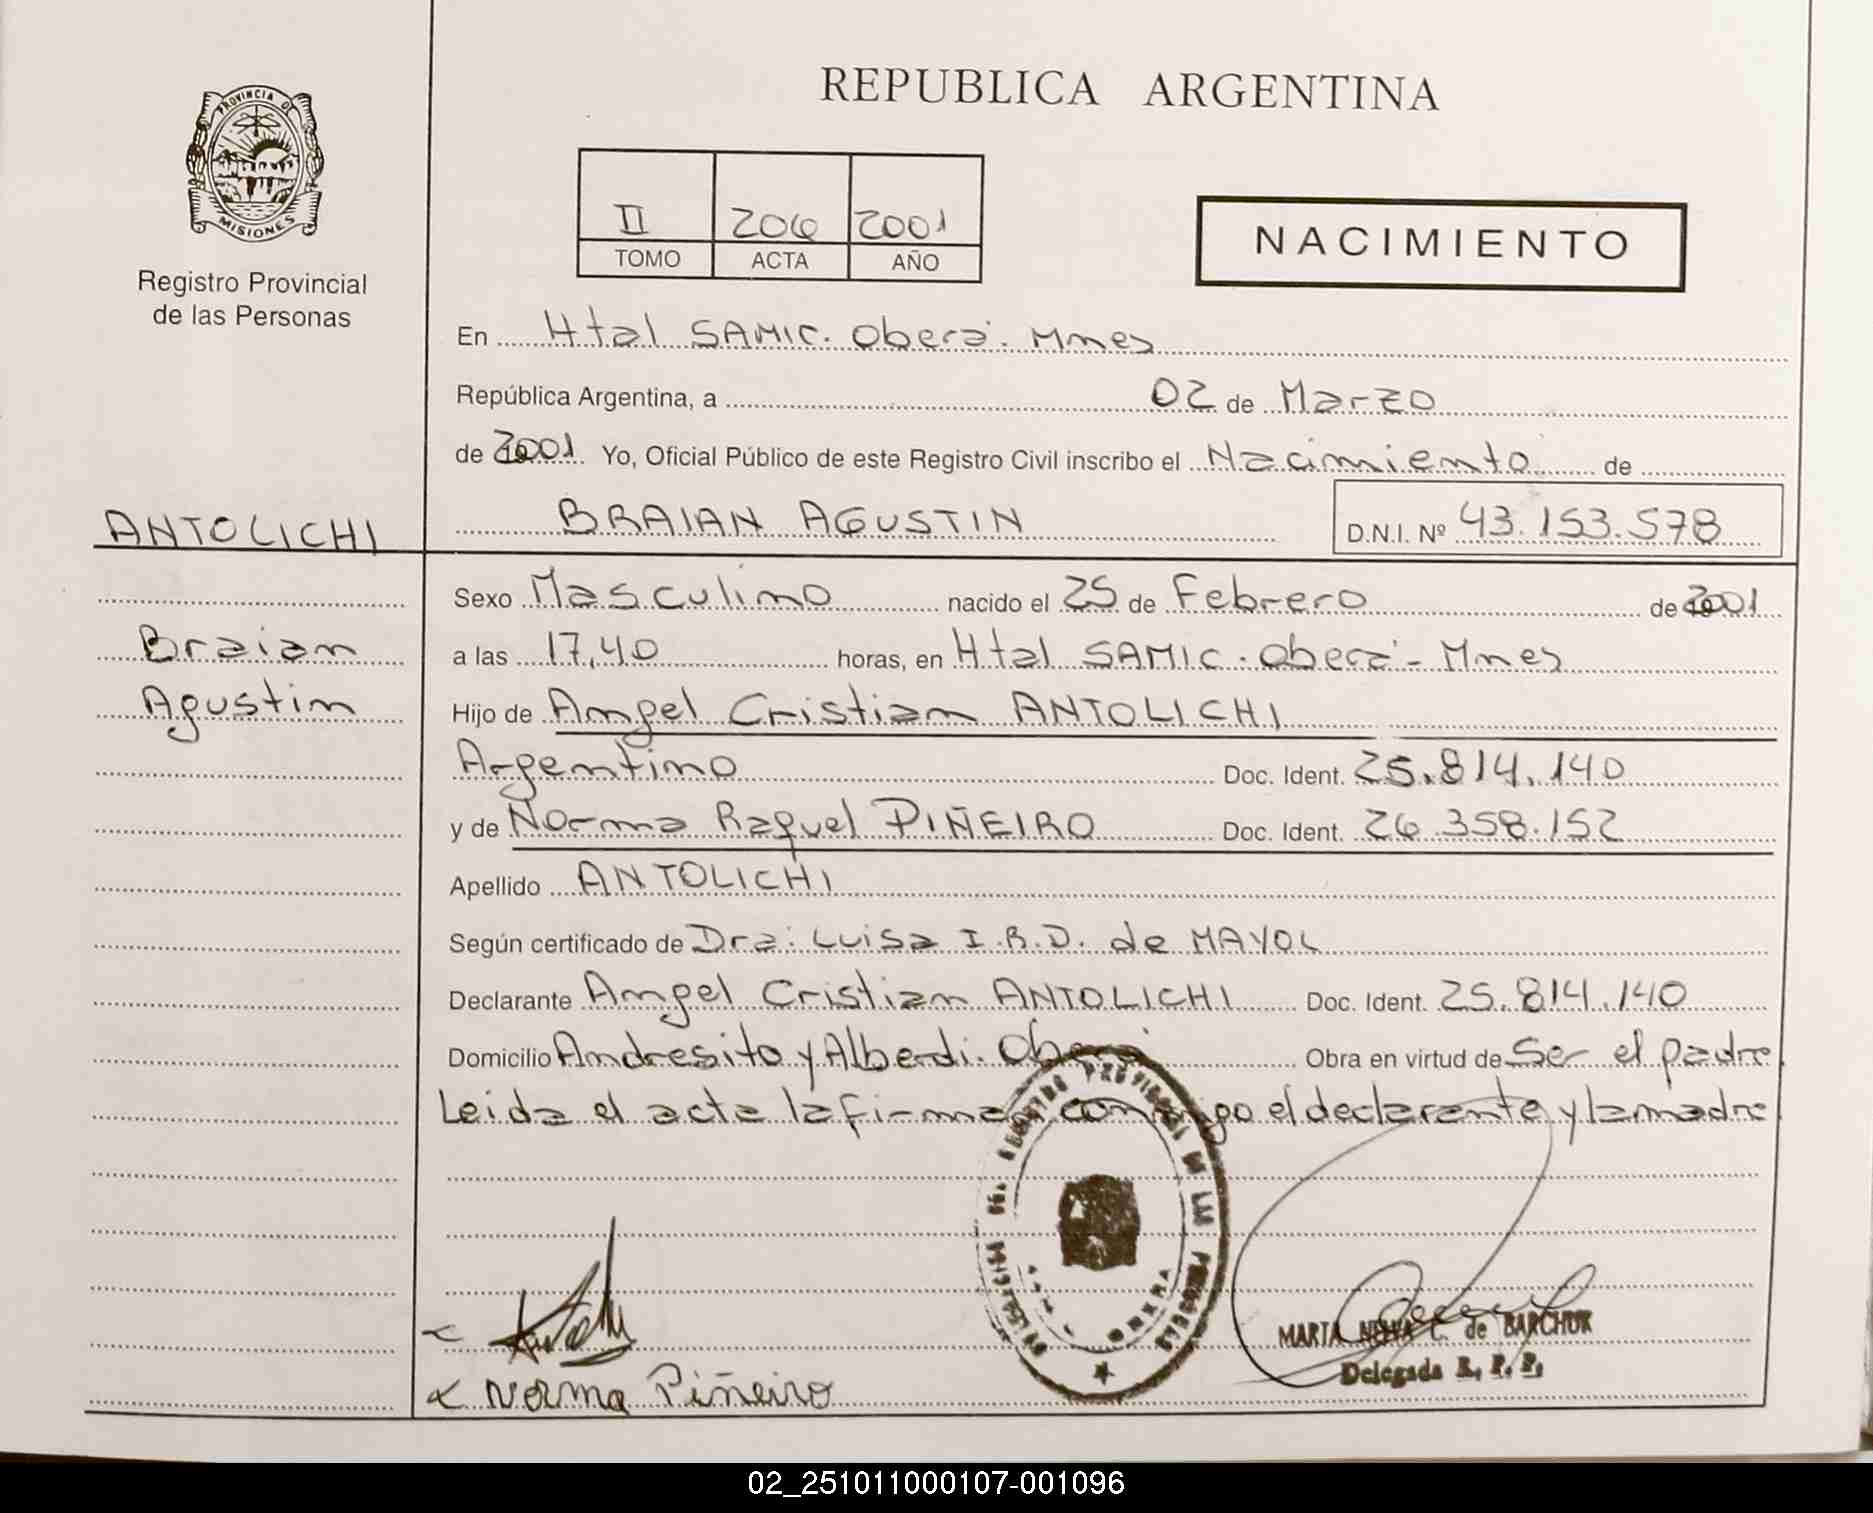 REPUBLICA ARGENTINA
PROVINCIA DE
MISIONES
Registro Provincial
de las Personas
II 206 2001
TOMO ACTA AÑO
NACIMIENTO
En Htal SAMIC. Oberá. Mnes
República Argentina, a 02 de Marzo
de 2001 Yo, Oficial Público de este Registro Civil inscribo el Nacimiento de
ANTOLICHI BRAIAN AGUSTIN D.N.I. Nº 43.153.578
Sexo Masculino nacido el 25 de Febrero de 2001
Braian a las 17,40 horas, en Htal SAMIC. Oberá - Mnes
Agustin Hijo de Angel Cristian ANTOLICHI
Argentino Doc. Ident. 25.814.140
y de Norma Raquel PIÑEIRO Doc. Ident. 26.358.152
Apellido ANTOLICHI
Según certificado de Dra. Luisa I.R.D. de MAYOL
Declarante Angel Cristian ANTOLICHI Doc. Ident. 25.814.140
Domicilio Andresito y Alberdi. Oberá Obra en virtud de Ser el padre
Leida el acta la firman conmigo el declarante y la madre
MARTA C. de BARCHUK
Delegada R. P. P.
Norma Piñeiro
02_251011000107-001096